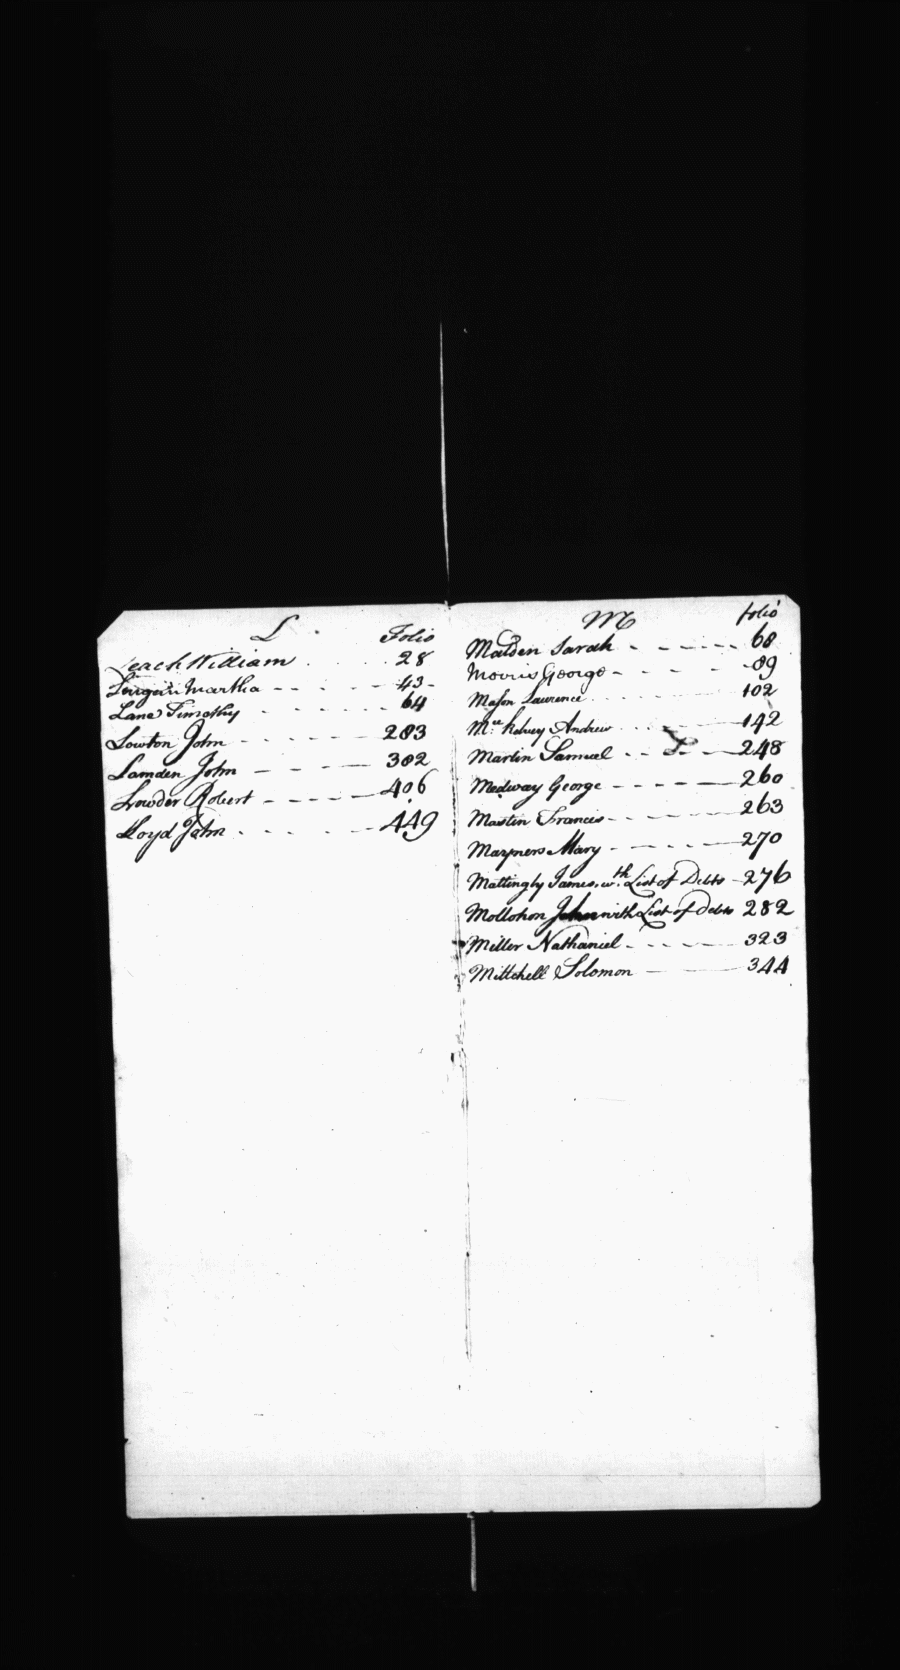 L Folio
Leach William 28
Lingan Martha 43
Lane Timothy 64
Lowton John 283
Lamden John 382
Lowder Robert 406
Lloyd John 449
M folio
Maiden Sarah 68
Morris George 89
Mason Laurence 102
Mc. Kelvey Andrew 142
Martin Samuel 248
Medway George 260
Mastin Frances 263
Maryners Mary 270
Mattingly James, wth. List of Debts 276
Mollohon John with List of Debts 282
Miller Nathaniel 323
Mittchell Solomon 344